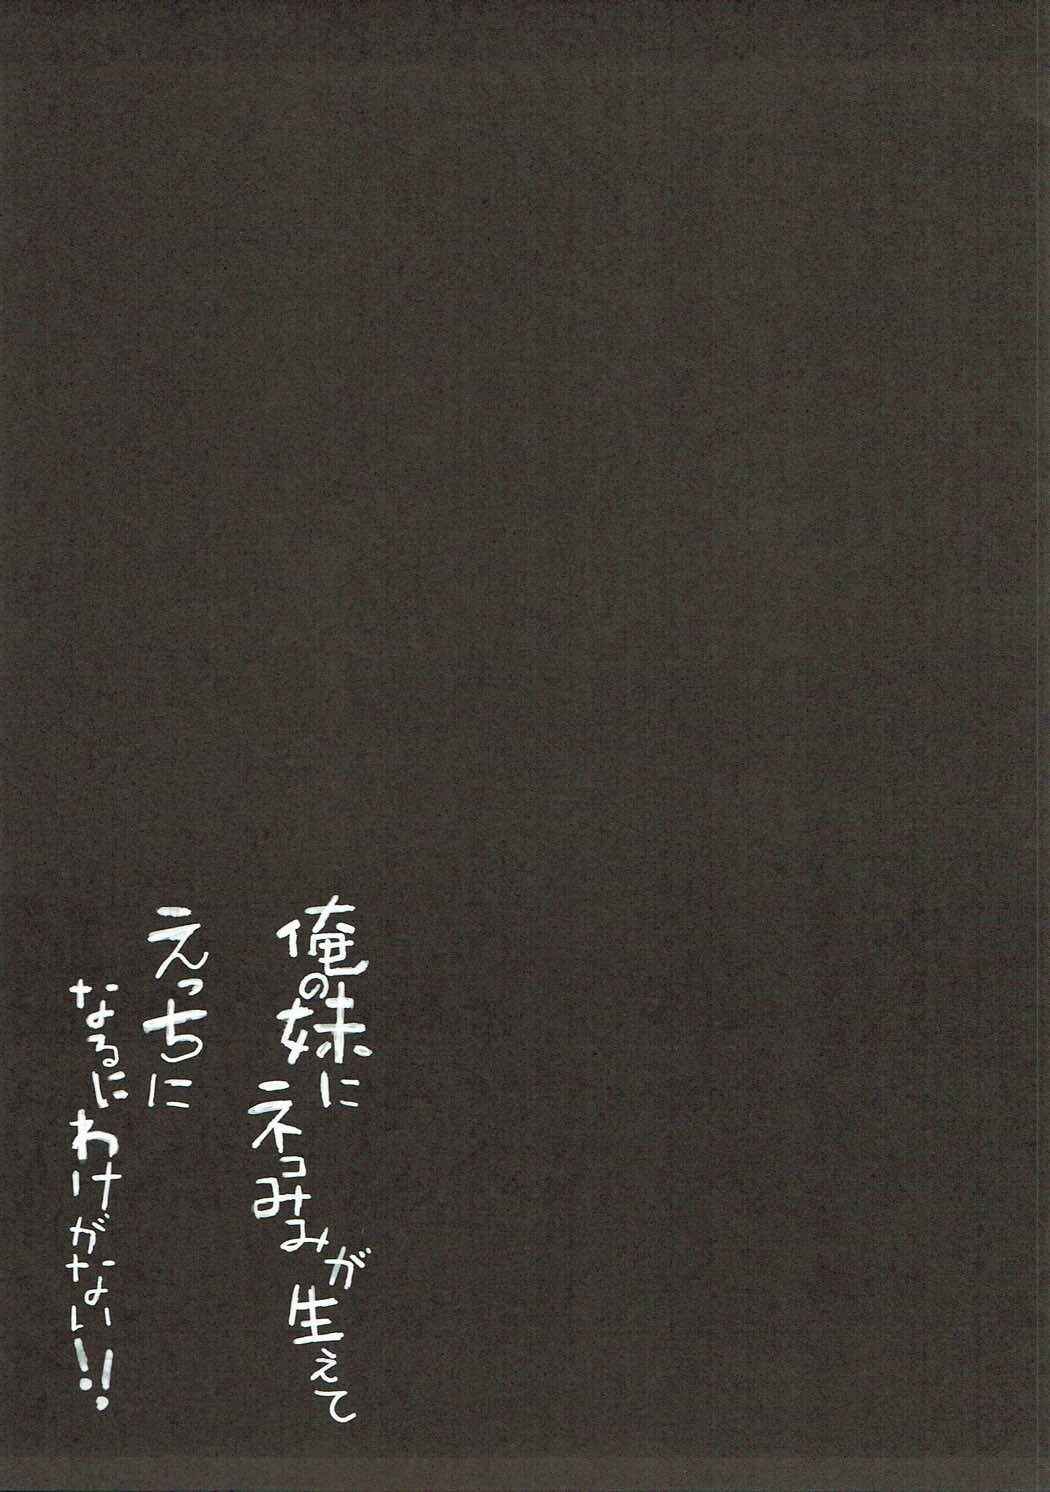 俺の妹に
ネコみみが
生えて
えっちに
なるにわけがない!!